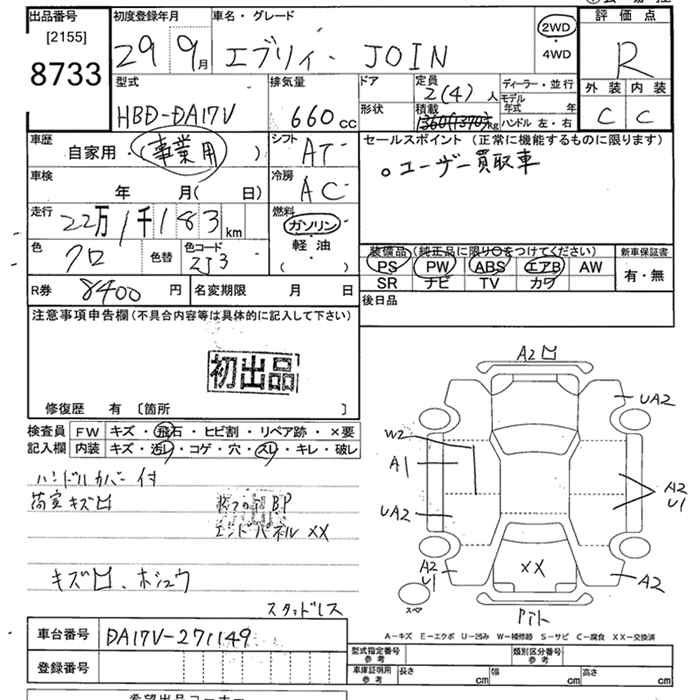 出品番号 初度登録年月 車名・グレード 評価点
[2155] 29 9月 エブリィ JOIN 2WD・4WD R
8733
型式 排気量 ドア 定員 2(4)人 ディーラー・並行 外装 内装
HBD-DA17V 660cc 形状 積載 kg モデル年式 年 C C
ハンドル 左・右
車歴 シフト セールスポイント (正常に機能するものに限ります)
自家用・(事業用) AT 。ユーザー買取車
車検 冷房
年 月( 日) AC
走行 燃料
22万1千183km ガソリン・軽油・( )
色 色替 色コード 装備品 (純正品に限り○をつけてください) 新車保証書
クロ ZJ3 PS PW ABS エアB AW 有・無
SR ナビ TV カワ
R券 8400円 名変期限 月 日 後日品
注意事項申告欄 (不具合内容等は具体的に記入して下さい)
初出品
修復歴 有 〔箇所 〕
検査員記入欄 FW キズ・飛石・ヒビ割・リペア跡・×要
内装 キズ・汚れ・コゲ・穴・スレ・キレ・破レ
ハンドルカバー付
荷室キズ凹 BP
エンドパネル XX
キズ凹、ホシュウ
スタッドレス
A2凹
UA2
W2
A1
A2
U1
UA2
XX
A2
U1
A2
スペア
A-キズ E-エクボ U-凹み W-補修跡 S-サビ C-腐食 XX-交換済
車台番号 DA17V-271149 型式指定番号 参考 類別区分番号 参考
登録番号 車庫証明用 参考 長さ cm 幅 cm 高さ cm